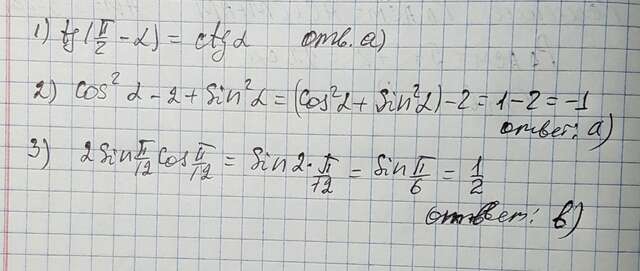 1) tg(π/2 - α) = ctgα отв. а)
2) cos²α - 2 + sin²α = (cos²α + sin²α) - 2 = 1 - 2 = -1
ответ: а)
3) 2 sin π/12 cos π/12 = sin 2 · π/12 = sin π/6 = 1/2
ответ: в)